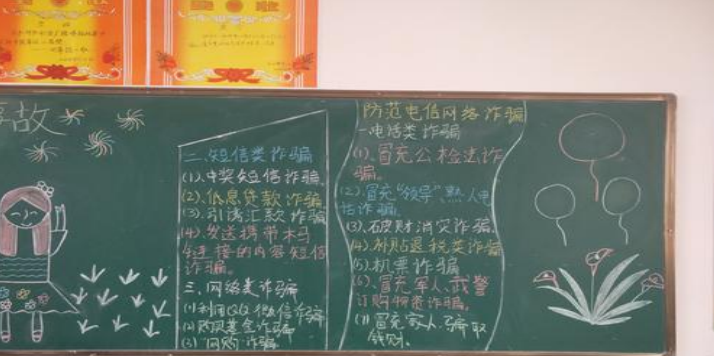 故
防范电信网络诈骗
一、电话类诈骗
(1)、冒充公检法诈
骗。
(2)、冒充“领导”、熟人电
话诈骗。
(3)、破财消灾诈骗。
(4)、补贴退税类诈骗
(5)、机票诈骗
(6)、冒充军人、武警
订购物资诈骗。
(7)冒充家人骗取
钱财。
二、短信类诈骗
(1)、中奖短信诈骗
(2)、低息贷款诈骗
(3)、引诱汇款诈骗
(4)、发送携带木马
链接的内容短信
诈骗。
三、网络类诈骗
(1)利用QQ微信诈骗
(2)
(3)网购诈骗